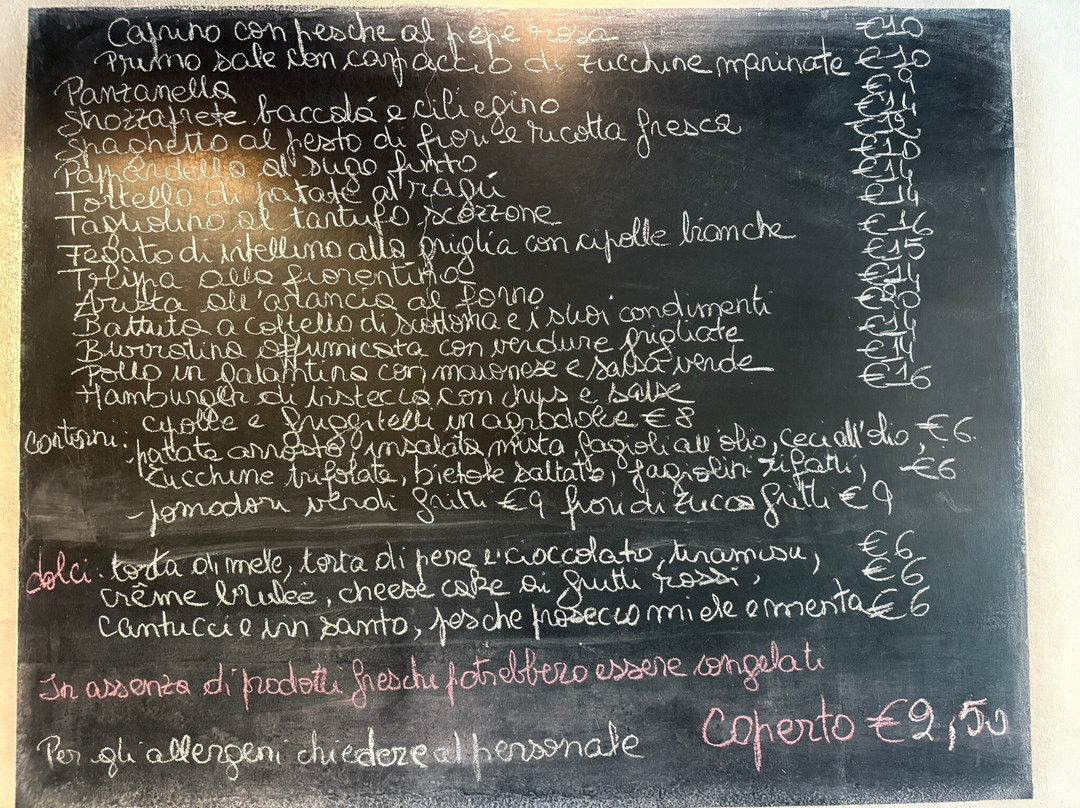 Caprino con pesche al pepe rosa €10
Primo sale con carpaccio di zucchine marinate €10
Panzanella €9
Strozzaprete baccalá e ciliegino
Spaghetto al pesto di fiori e ricotta fresca
Pappardella al sugo finto
Tortello di patate al ragú
Tagliolino al tartufo scorzone €14
Fegato di vitellino alla griglia con cipolle bianche €16
Trippa alla fiorentina €15
Arista all'arancia al forno
Battuta a coltello di scottona e i suoi condimenti
Burratina affumicata con verdure grigliate €14
Pollo in galantina con maionese e salsa verde €14
Hamburger di bistecca con chips e salse €16
cipolle e friggitelli in agrodolce €8
contorni: patate arrosto, insalata mista, fagioli all'olio, ceci all'olio, €6
zucchine trifolate, bietole saltate, fagiolini rifatti, €6
- pomodori verdi fritti €9 fiori di zucca fritti €9
dolci: torta di mele, torta di pere e cioccolato, tiramisu, €6
crème brulée, cheese cake ai frutti rossi, €6
cantucci e vin santo, pesche prosecco miele e menta €6
In assenza di prodotti freschi potrebbero essere congelati
Coperto €2,50
Per gli allergeni chiedere al personale